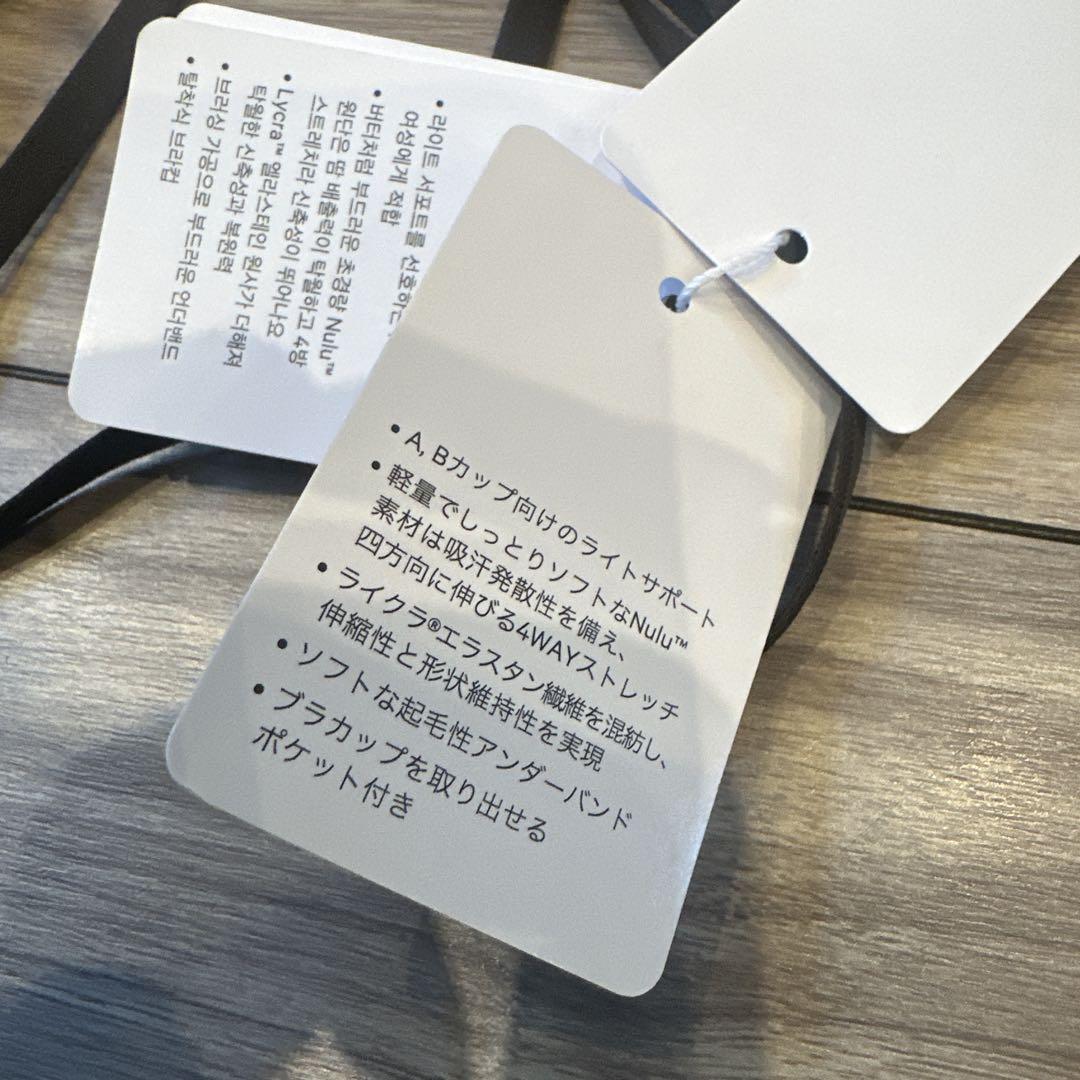 • 라이트 서포트를 선호하는
여성에게 적합
• 버터처럼 부드러운 초경량 Nulu™
원단은 땀 배출력이 탁월하고 4방
스트레치라 신축성이 뛰어나요
• Lycra™ 엘라스테인 원사가 더해져
탁월한 신축성과 복원력
• 브러싱 가공으로 부드러운 언더밴드
• 탈착식 브라컵
• A, Bカップ向けのライトサポート
• 軽量でしっとりソフトなNulu™
素材は吸汗発散性を備え、
四方向に伸びる4WAYストレッチ
• ライクラ®エラスタン繊維を混紡し、
伸縮性と形状維持性を実現
• ソフトな起毛性アンダーバンド
• ブラカップを取り出せる
ポケット付き